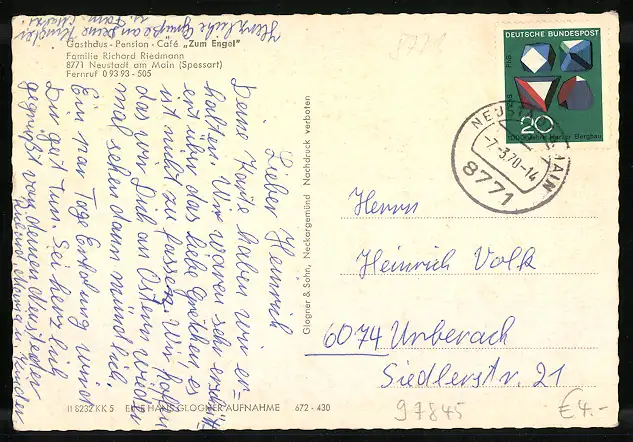 Herzliche Grüße an
Gasthaus - Pension - Café „Zum Engel"
Familie Richard Riedmann
8771 Neustadt am Main (Spessart)
Fernruf 0 93 93 - 505
8771
Lieber Heinrich
Deine Karte haben wir er=
halten. Wir waren sehr
ert über das liebe Gretchen es
ist nicht zu fassen. Wir hoffen
das wir Dich an Ostern wieder
mal sehen dann mündlich.
Ein par Tage Erholung wird
Dir gut tun. Sei herzlich
gegrüßt von deinen Neustädter
u. Kinder
Glogner & Sohn, Neckargemünd Nachdruck verboten
DEUTSCHE BUNDESPOST
20
1000 Jahre Harzer Bergbau
-7.-3.70-14
MAIN
8771
Herrn
Heinrich Volk
6074 Urberach
Siedlerstr. 21
II 8232 KK 5 EINE HANS GLOGNER AUFNAHME 672 - 430
97845
€4.-